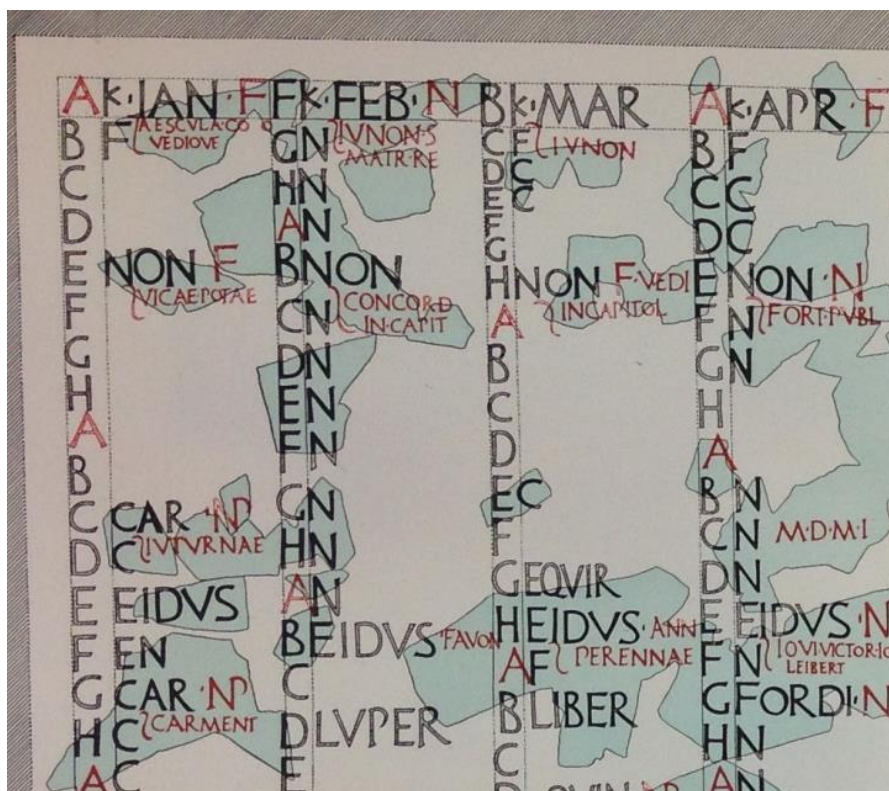 A K·JAN·F
B F AESCVLA·CO
VEDIOVE
C
D
E NON F
VICAEPOTAE
F
G
H
A
B
C CAR·NP
D C IVTVRNAE
E EIDVS
F EN
G CAR·NP
H C CARMENT
A C
F K·FEB·N
G N IVNON·S
MATR·RE
H N
A N
B NON
C N CONCORD
IN·CAPIT
D N
E N
F N
G N
H N
A N
B EIDVS·FAVON
C
D LVPER
E
B K·MAR
C F IVNON
D C
E C
F
G
H NON F·VEDI
IN CAPITOL
A
B
C
D
E C
F
G EQVIR
H EIDVS·ANN
A F PERENNAE
B LIBER
C
D
A K·APR·F
B F
C C
D C
E NON·N
F N FORT·PVBL
G N
H
A
B N
C N M·D·M·I
D N
E EIDVS·N
F N IOVI·VICTOR·IO
LEIBERT
G FORDI·N
H N
A N